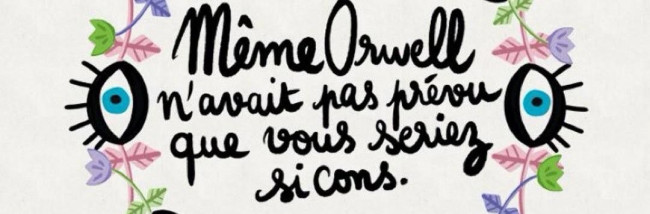 Même Orwell
n'avait pas prévu
que vous seriez
si cons.